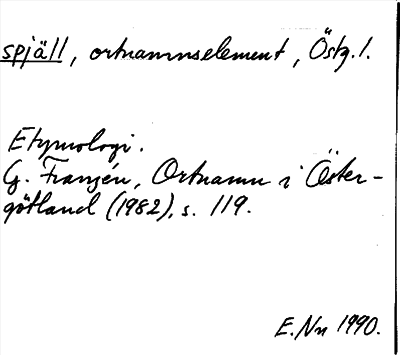 spjäll, ortnamnselement, Östg.l.
Etymologi.
G. Franzén, Ortnamn i Öster-
götland (1982), s. 119.
E. Nn 1990.